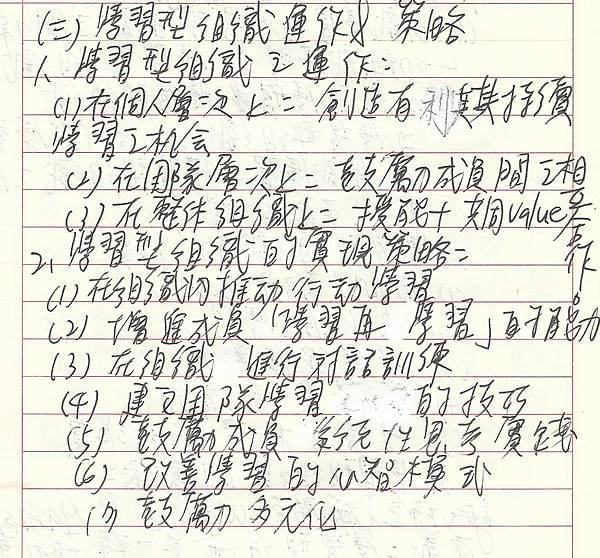 (三)學習型組織運作& 策略
1、學習型組織之運作:
(1)在個人層次上:創造有利其持續
學習之机会
(2)在团隊層次上:鼓勵成員間互相合作。
(3)在整体組織上:擴能+共同value
2、學習型組織的實現策略:
(1)在組織內推动行动學習
(2)增進成員「學習再學習」的能力
(3)在組織進行对話訓練
(4)建立团隊學習的技巧
(5)鼓勵成員系統性思考實踐
(6)改善學習的心智模式
(7)鼓勵多元化